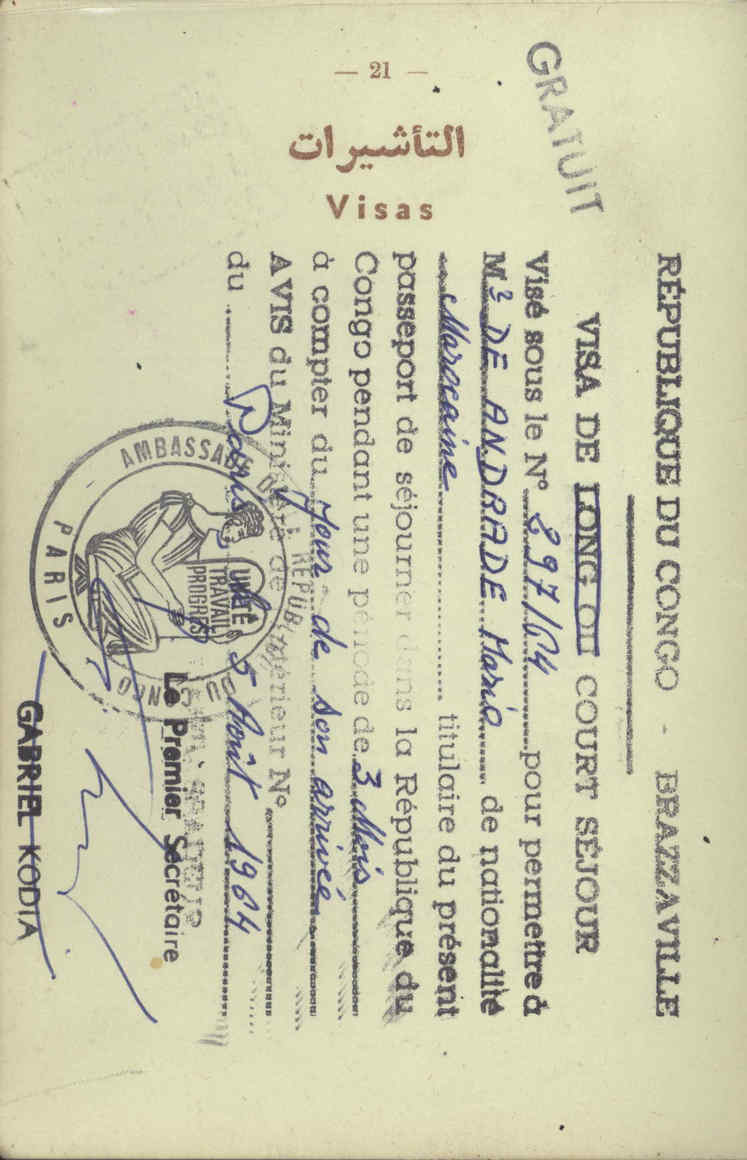 — 21 —
التأشيرات
Visas
GRATUIT
RÉPUBLIQUE DU CONGO - BRAZZAVILLE
VISA DE LONG OU COURT SÉJOUR
Visé sous le N° 897/64 pour permettre à
M DE ANDRADE Mario de nationalité
Marocaine titulaire du présent
passeport de séjourner dans la République du
Congo pendant une période de 3 Mois
à compter du Jour de son arrivée
AVIS du Ministère de l'Intérieur N°
du
Paris 5 Août 1964
AMBASSADE DE LA RÉPUBLIQUE DU CONGO
PARIS
UNITÉ
TRAVAIL
PROGRÈS
Le Premier Secrétaire
GABRIEL KODIA